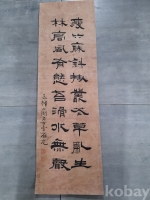 瘦竹藤斜掛叢花草亂生
林高風有態苔滑水無聲
kobay